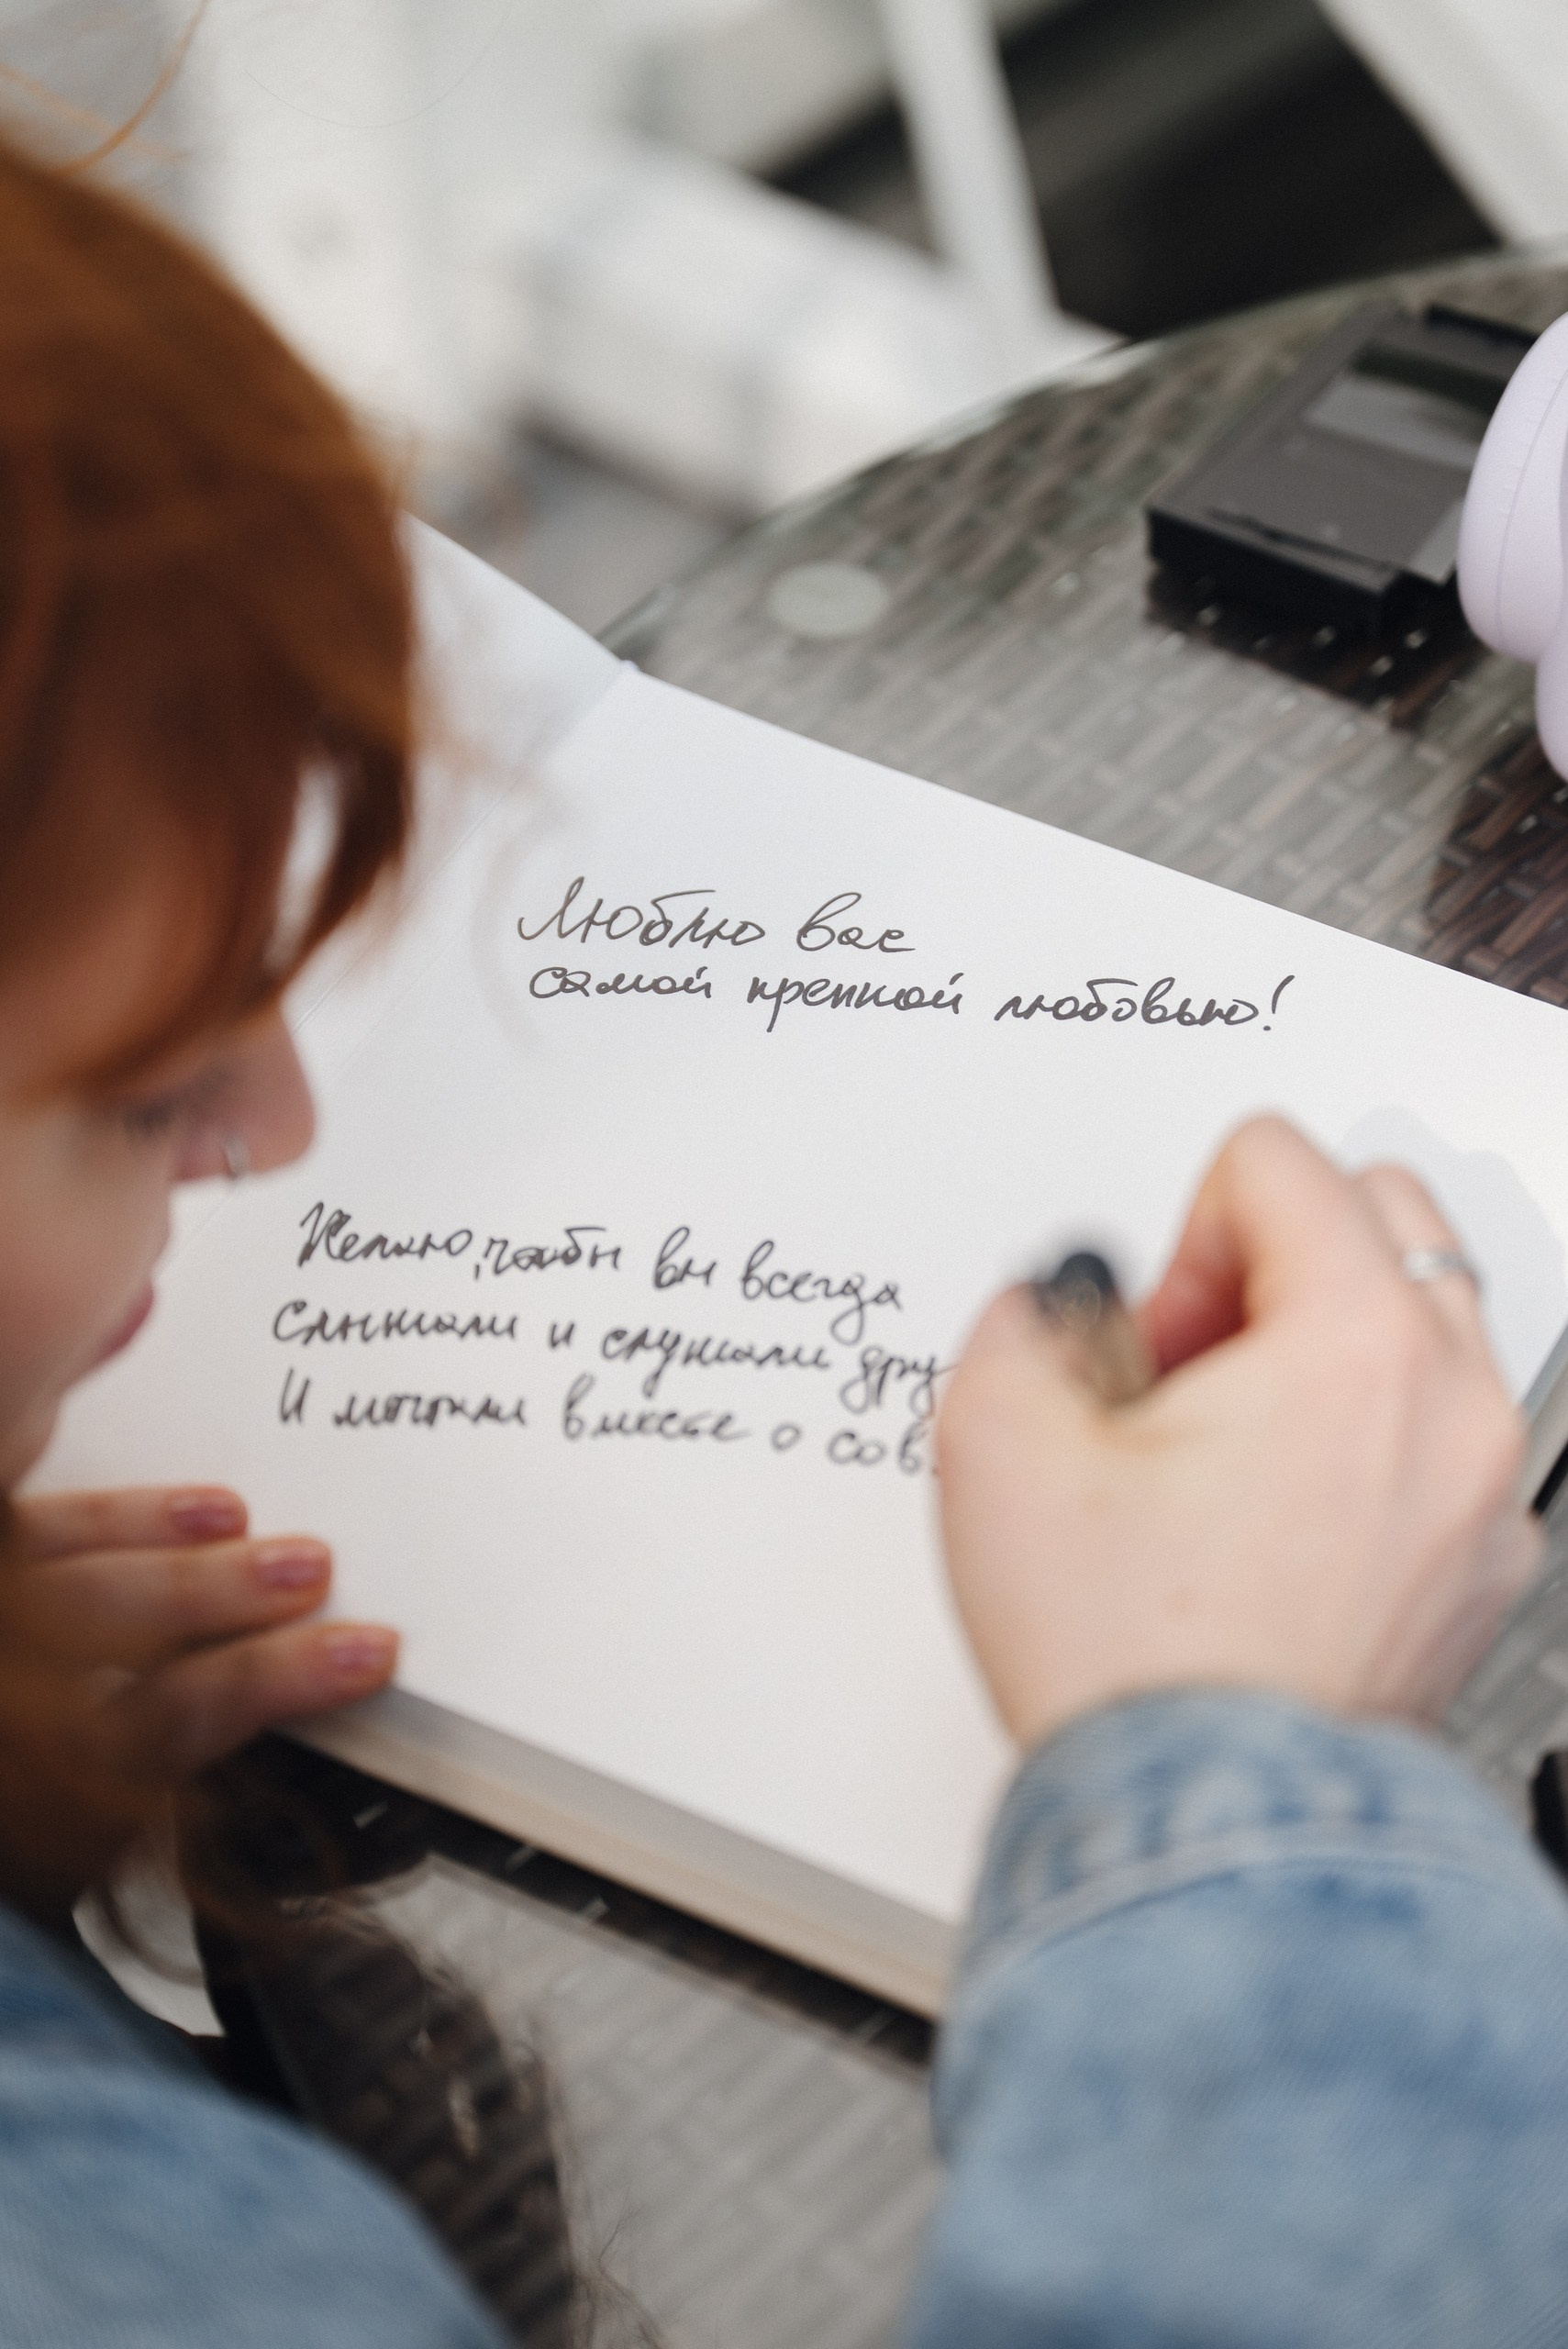 Люблю вас
самой крепкой любовью!
Желаю, чтобы вы всегда
слышали и слушали дру
И мечтали вместе о сов